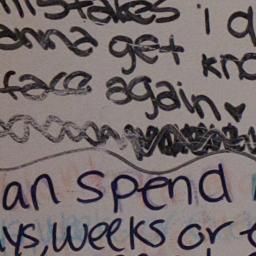 mistakes i
anna get
kno
face again
an spend
ys, weeks or